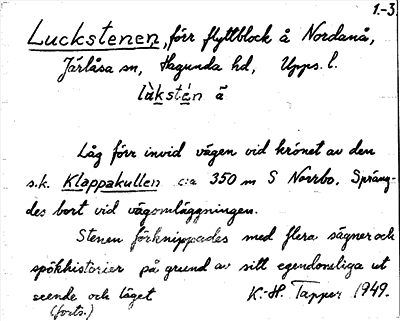 1.-3.
Luckstenen, förr flyttblock å Nordanå,
Järlåsa sn, Hagunda hd, Upps. l.
lùkstén ä
Låg förr invid vägen vid krönet av den
s.k. Klappakullen c:a 350 m S Norrbo. Spräng-
des bort vid vägomläggningen.
Stenen förknippades med flera sägner och
spökhistorier på grund av sitt egendomliga ut
seende och läget K.-H. Tapper 1949.
(forts.)